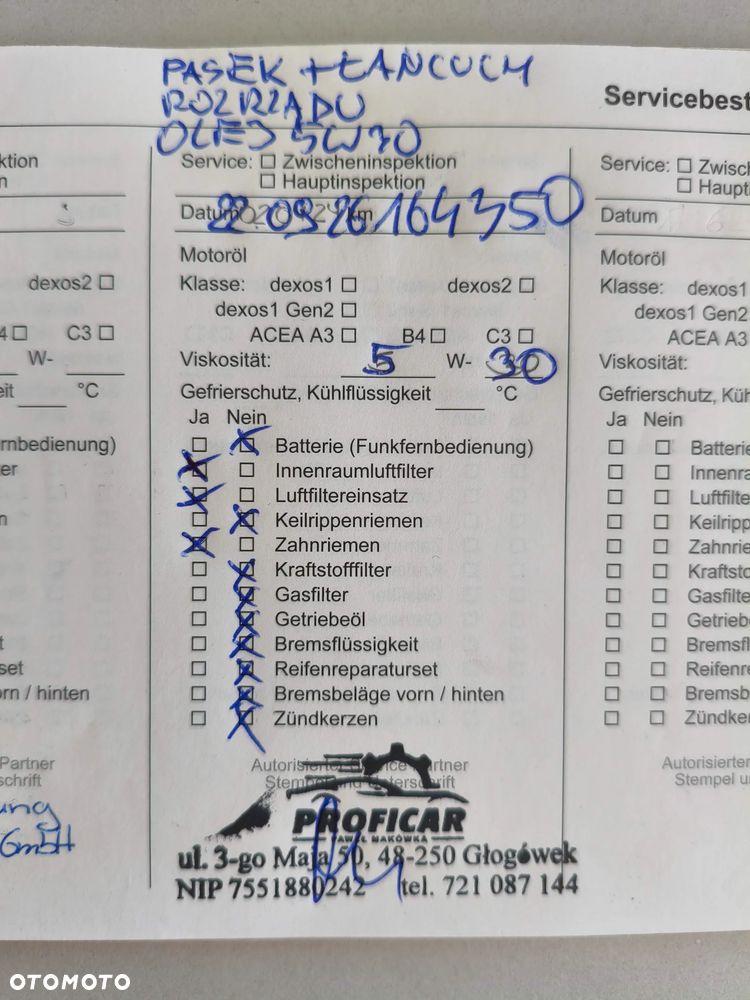 PASEK + ŁAŃCUCH
ROZRZĄDU
OLEJ 5W30
Servicebest
ktion
n
Service: ☐ Zwischeninspektion
☐ Hauptinspektion
Service: ☐ Zwisc
☐ Haupt
Datum 22 09 km 164350
Datum
Motoröl
Motoröl
dexos2 ☐
Klasse: dexos1 ☐ dexos2 ☐
Klasse: dexos1
dexos1 Gen2 ☐
dexos1 Gen2
4 ☐ C3 ☐
ACEA A3 ☐ B4 ☐ C3 ☐
ACEA A3
W-
Viskosität: 5 W- 30
Viskosität:
eit °C
Gefrierschutz, Kühlflüssigkeit °C
Gefrierschutz, Küh
Ja Nein
Ja Nein
ernbedienung)
☐ ☒ Batterie (Funkfernbedienung)
☐ ☐ Batterie
er
☒ ☐ Innenraumluftfilter
☐ ☐ Innenra
☒ ☐ Luftfiltereinsatz
☐ ☐ Luftfilte
n
☐ ☒ Keilrippenriemen
☐ ☐ Keilripp
☒ ☐ Zahnriemen
☐ ☐ Zahnrie
☐ ☒ Kraftstofffilter
☐ ☐ Kraftsto
☐ ☒ Gasfilter
☐ ☐ Gasfilte
☐ ☒ Getriebeöl
☐ ☐ Getriebe
t
☐ ☒ Bremsflüssigkeit
☐ ☐ Bremsfl
set
☐ ☒ Reifenreparaturset
☐ ☐ Reifenre
vorn / hinten
☐ ☒ Bremsbeläge vorn / hinten
☐ ☐ Bremsb
☐ ☒ Zündkerzen
☐ ☐ Zündke
Partner
schrift
Autorisierter Service Partner
Stempel und Unterschrift
Autorisier
Stempel u
ung
GmbH
PROFICAR
PAWEŁ MAKÓWKA
ul. 3-go Maja 50, 48-250 Głogówek
NIP 7551880242 tel. 721 087 144
OTOMOTO